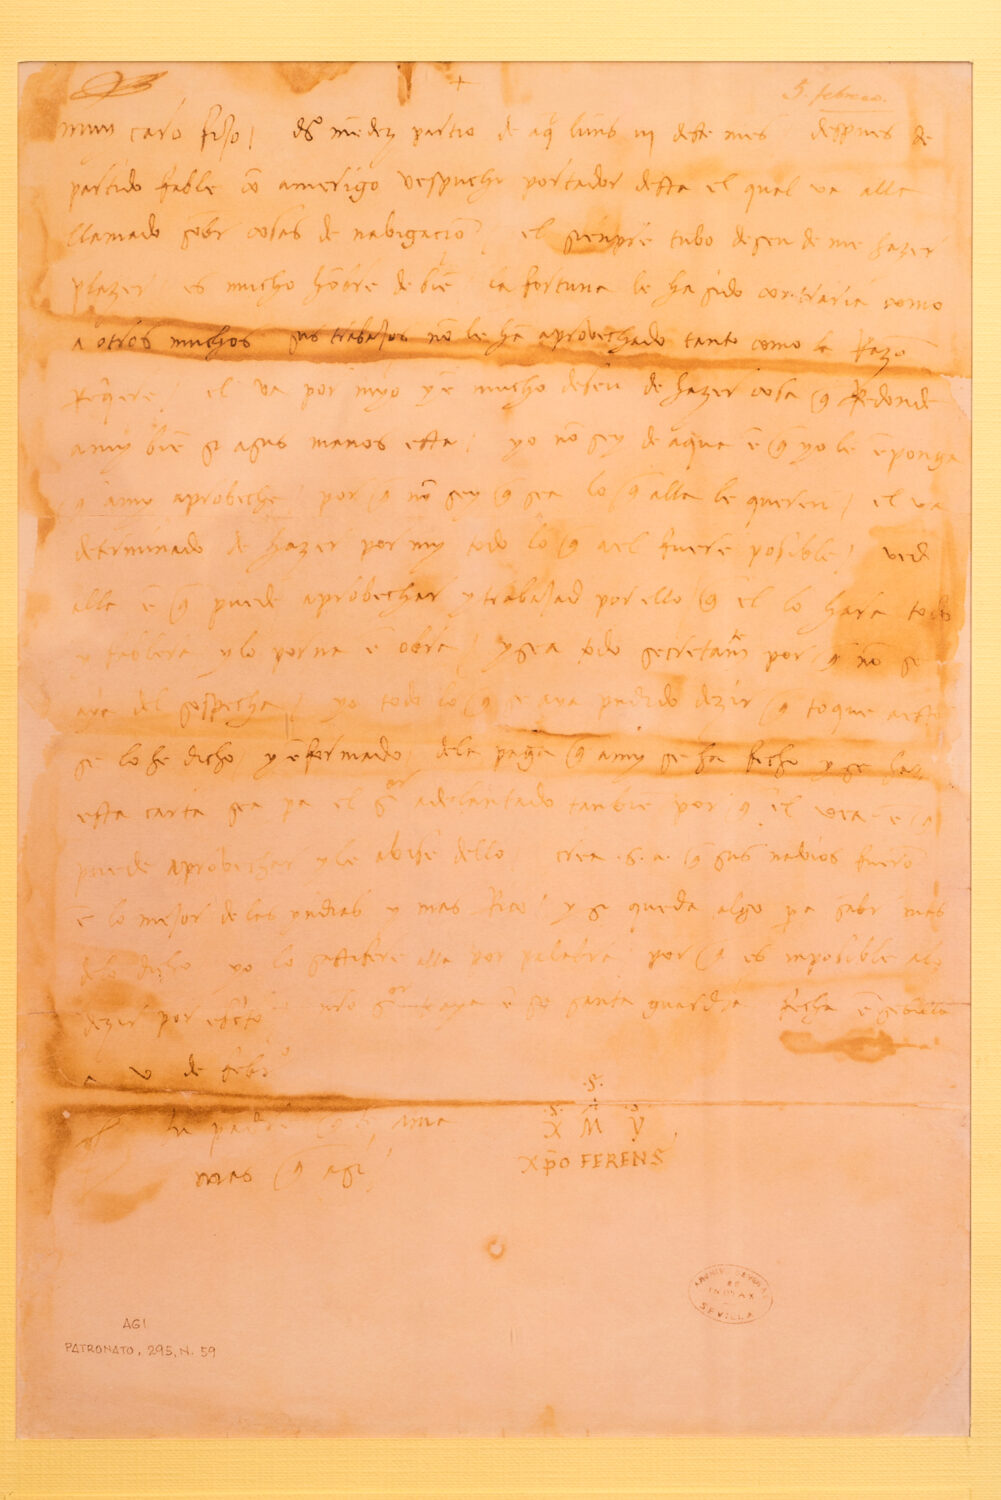 +
5. febrero.
muy caro fijo / d° mēdez partio de aq̄ luns iij deste mes despues de
partido fable cō amerigo vespuchi portador desta el qual va alla
llamado sobr cosas de nabigaciō / el sienpre tubo deseu de me hazer
plazer / es mucho hōbre de biē la fortuna le ha sido contraria como
a otros muchos sus trabajos nō le hā aprobechado tanto como la Razō
Reqere / el va por myo y ē mucho deseu de hazer cosa q̄ Redonde
a my biē si a sus manos esta / yo nō sey de aqua ē q̄ yo le ēponga
q̄ amy aprobeche / por q̄ nō sey q̄ sea lo q̄ alla le queren / el va
determinado de hazer por my todo lo q̄ a el fuere posible / vede
alla ē q̄ puede aprobechar y trabajad por ello q̄ el lo hara todo
y fablera y lo porna e obra / y sea todo secretamte por q̄ nō se
aya del sospecha / yo todo lo q̄ se aya pudido dezir q̄ toque a esto
se lo he dicho / y ēformado / dela paga q̄ a my se ha fecho y se haz
esta carta sea pa el sor adelantado tanbiē por q̄ el vea e q̄
puede aprobechar y le abise dello / crea .s.a. q̄ sus nabios fuerō
ē lo mejor de las yndias y mas Rico / y si queda algo pa sabr mas
delo dicho yo lo sattisfere alla por palabra por q̄ es inposible a lo
dezir por escto nro sor te aya ē su santa guardia fecha ē sebilla
a v de febro
tu padre q̄ te ama
mas q̄ a si /
.S.
.S. A .S.
X M Y
Xp̄o FERENS
ARCHIVO GENERAL
DE
INDIAS
SEVILLA
AGI
PATRONATO, 295, N. 59